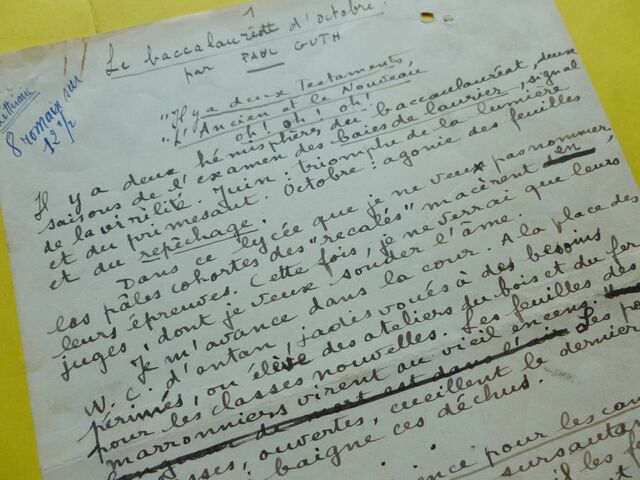 1
Le baccalauréat d'octobre
par PAUL GUTH
Littéraire
8 romain sur
12 1/2
"Il y a deux Testaments,
"L'Ancien et le Nouveau
oh! oh! oh!
Il y a deux hémisphères du baccalauréat, deux
saisons de l'examen des baies de laurier, signal
de la virilité. Juin : triomphe de la lumière
et du primesaut. Octobre : agonie des feuilles
et du repêchage.
Dans ce lycée que je ne veux pas nommer,
les pâles cohortes des "recalés" macèrent en
leurs épreuves. Cette fois, je ne verrai que leurs
juges, dont je veux sonder l'âme.
Je m'avance dans la cour. A la place des
W.C. d'antan, jadis voués à des besoins
périmés, on élève des ateliers du bois et du fer
pour les classes nouvelles. Les feuilles des
marronniers virent au vieil encens.
est dans l'air Les
ouvertes, cueillent le dernier
baigne ces déchus.
pour les
sursautant